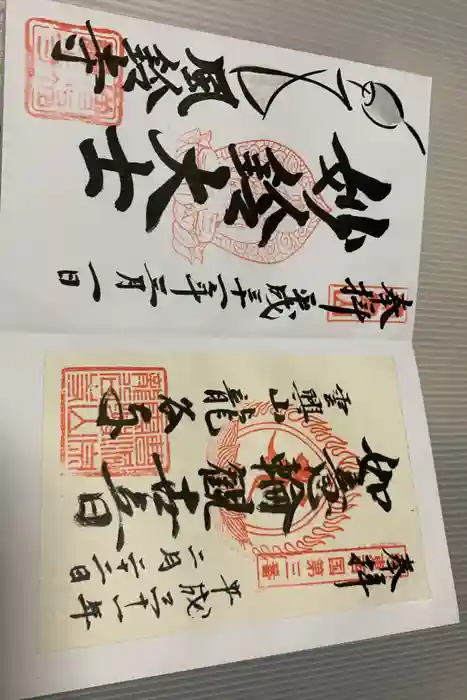 奉拝
平成三十一年
二月二十二日
如意輪観世音
雲興山龍谷寺
奉拝
平成三十一年三月一日
妙鈴大士
風鈴寺